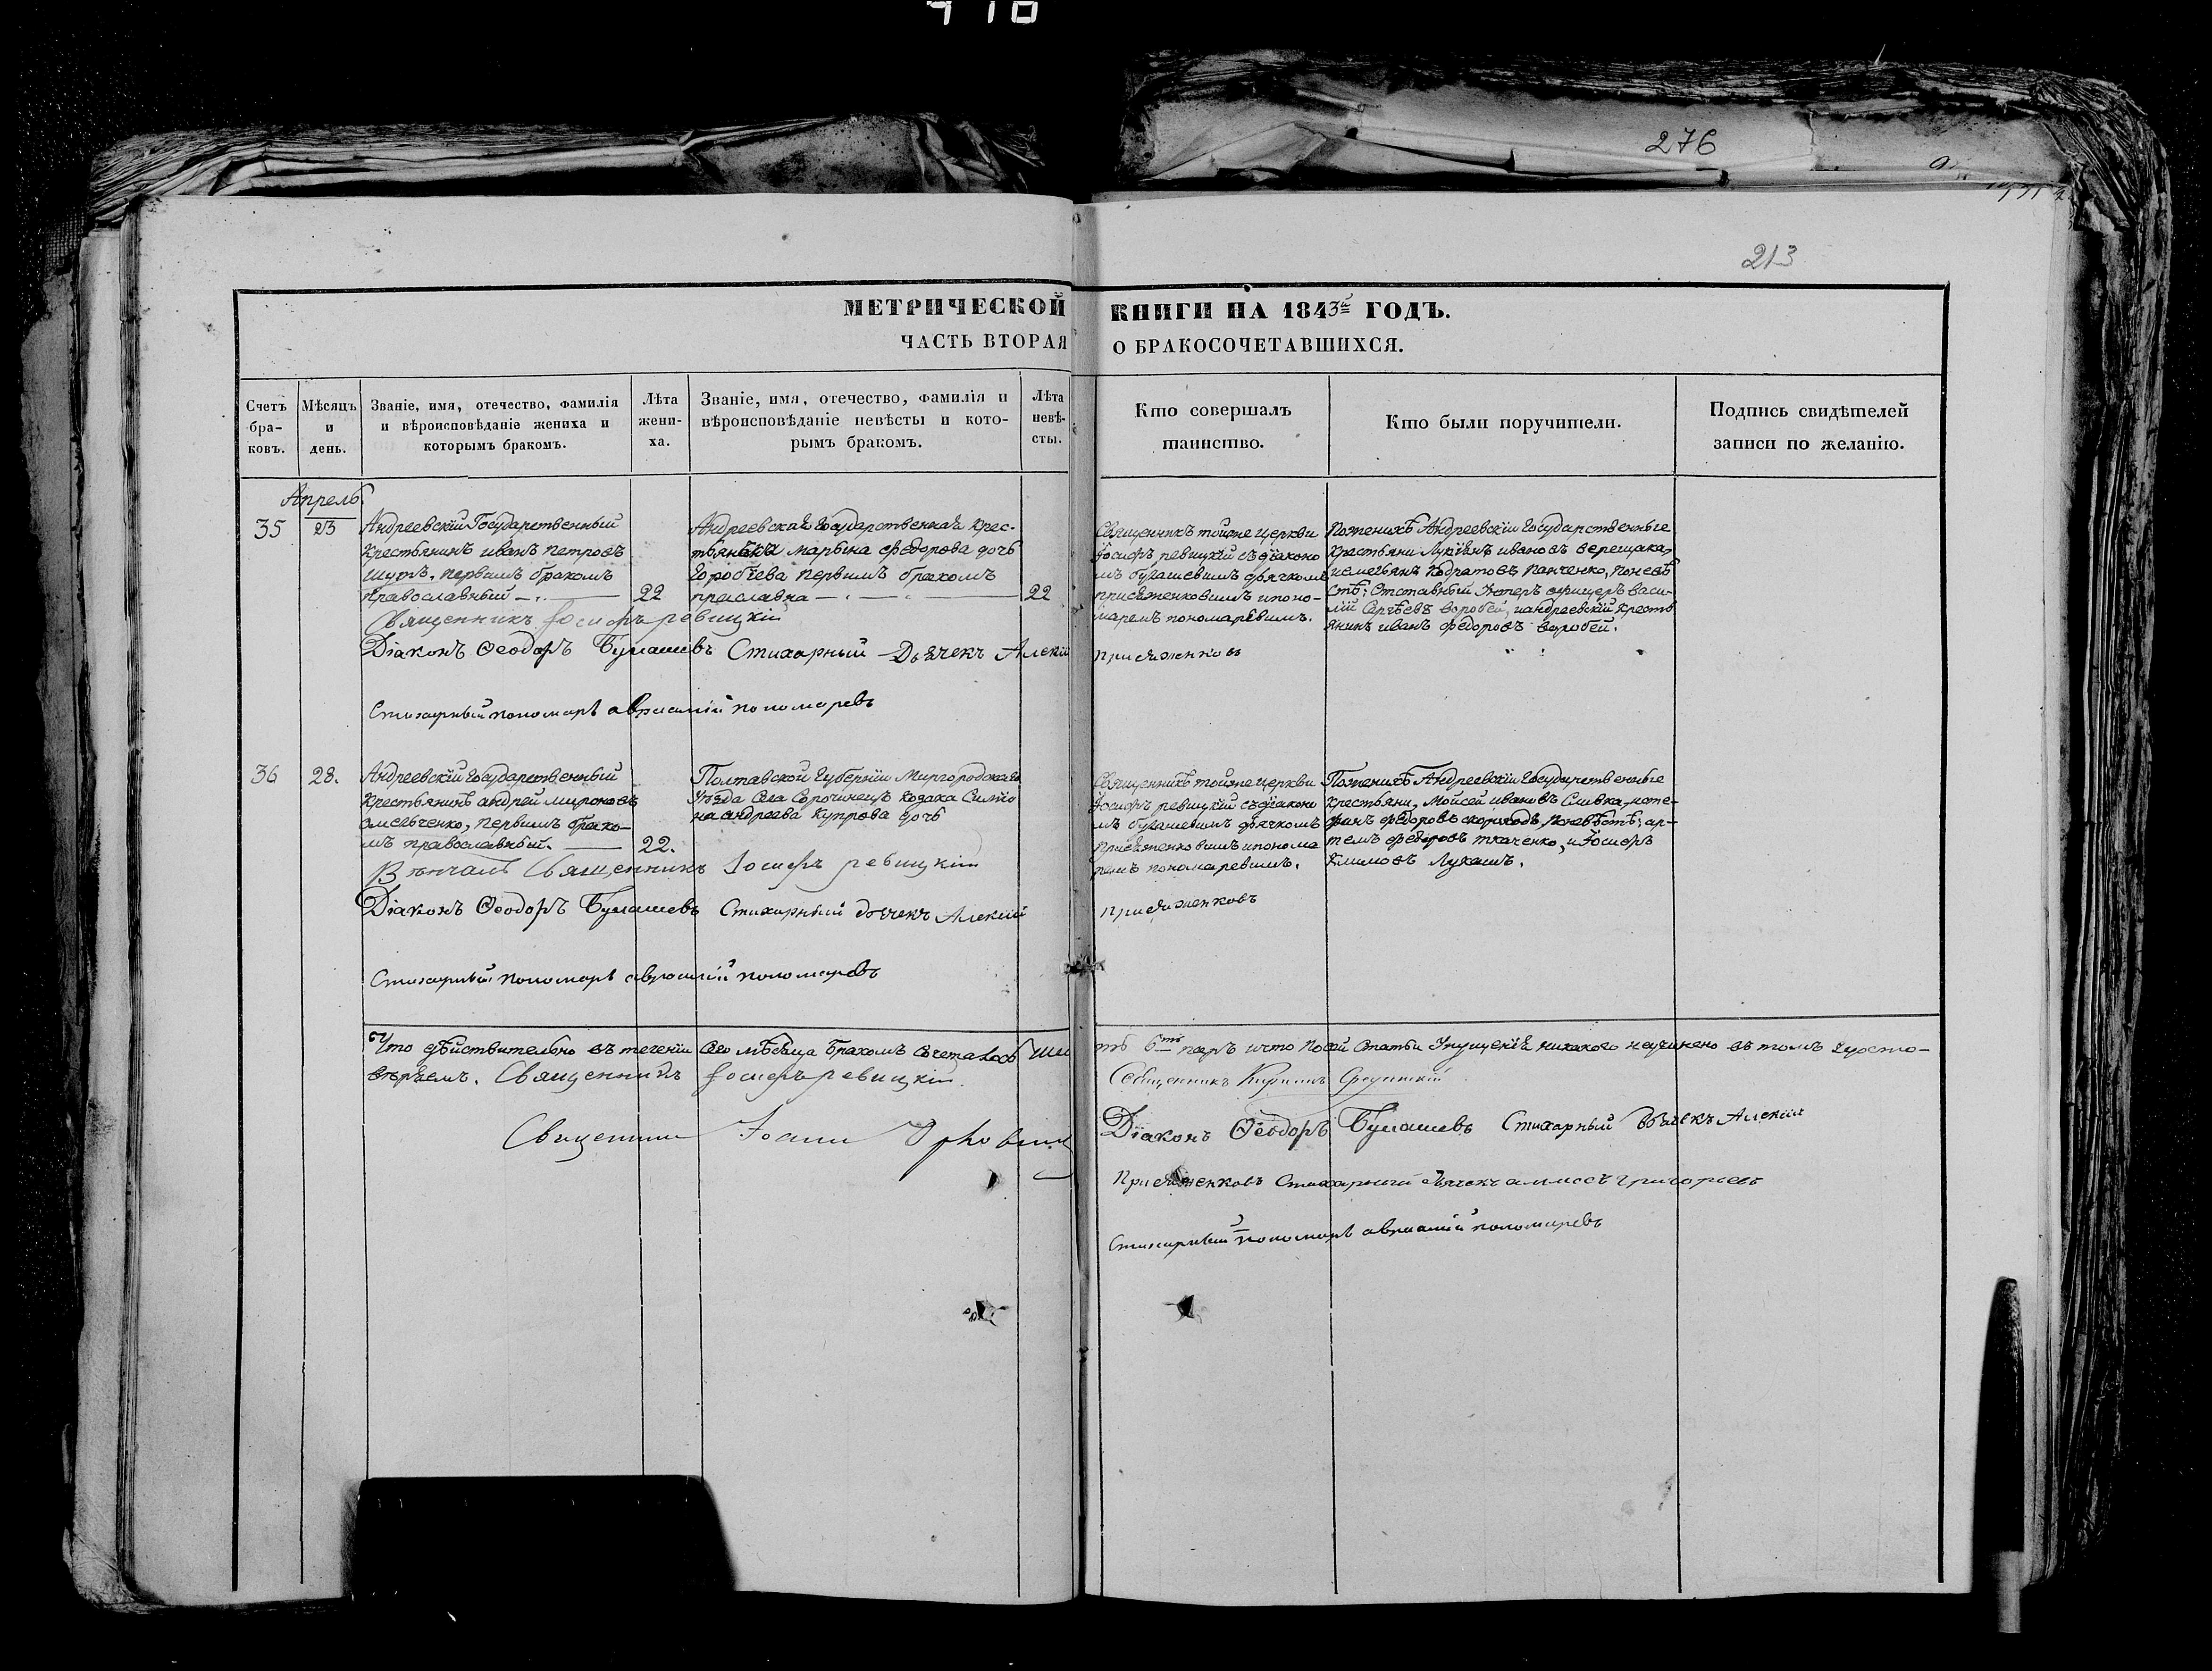 416
276
213
МЕТРИЧЕСКОЙ КНИГИ НА 1843й ГОДЪ.
ЧАСТЬ ВТОРАЯ О БРАКОСОЧЕТАВШИХСЯ.
Счетъ бра-
ковъ.
Мѣсяцъ
и
день.
Званіе, имя, отечество, фамилія
и вѣроисповѣданіе жениха и
которымъ бракомъ.
Лѣта
жени-
ха.
Званіе, имя, отечество, фамилія и
вѣроисповѣданіе невѣсты и кото-
рымъ бракомъ.
Лѣта
невѣ-
сты.
Кто совершалъ
таинство.
Кто были поручители.
Подпись свидѣтелей
записи по желанію.
Апрель
35
23
Андреевскій Государственный
Крестьянинъ иванъ петровъ
шутъ, первымъ бракомъ
православный
22
Андреевская Государственная крес-
тьянка марьина федорова дочь
Воробіева первымъ бракомъ
православна
22
Священникъ тойже церкви
Іосифъ ревицкій съ діаконо
мъ булашевимъ дячкомъ
присяженковимъ и поно-
маремъ пономаревимъ.
Поженихѣ Андреевскіи Государственные
Крестьяни Лукіянъ ивановъ верещака,
иемельянъ Кодратовъ панченко, поневѣ
стѣ: Отставный Унтеръ офицеръ васи-
лій Сергѣевъ воробей, иандреевскій кресть
янинъ иванъ федоровъ воробей.
Священникъ Іосифъ ревицкій
Діаконъ Ѳеодоръ Булашевъ Стихарный Дьячекъ Алексій Присяженковъ
Стихарный пономарь аврамій пономаревъ
36
28.
Андреевскій Государственный
Крестьянинъ андрей мироновъ
омельченко, первымъ брако-
мъ православный.
22.
Полтавской Губерніи Миргородскаго
Уѣзда Села Сорочинецъ козака Симіо
на андреева купрова дочь
Священникъ тойже церкви
Іосифъ ревицкій съ діаконо
мъ булашевимъ дячкомъ
Присяженковимъ ипонома
ремъ пономаревимъ.
Поженихѣ Андреевскіи Государственные
крестьяни, Мойсей ивановъ Сливка, ите-
федоровъ скороходъ, Поневѣстѣ: ар-
темъ федоровъ ткаченко, и Іосифъ
Климовъ Лукашъ.
Вѣнчалъ Священникъ Іосифъ ревицкій
Діаконъ Ѳеодоръ Булашевъ Стихарный дьячекъ Алексій Присяженковъ
Стихарный пономарь аврамій пономаревъ
Что дѣйствительно въ теченіи сего мѣсяца бракомъ сочеталось шесть 6ть паръ ичто посей статьи Упущенія никакого неучинено въ томъ удосто-
вѣряемъ. Священникъ Іосифъ ревицкій.
Священникъ Кирилъ
Священникъ Іоаннъ
Діаконъ Ѳеодоръ Булашевъ Стихарный дьячекъ Алексій
Присяженковъ Стихарный дьячекъ аммосъ григорьевъ
Стихарный пономарь аврамій пономаревъ